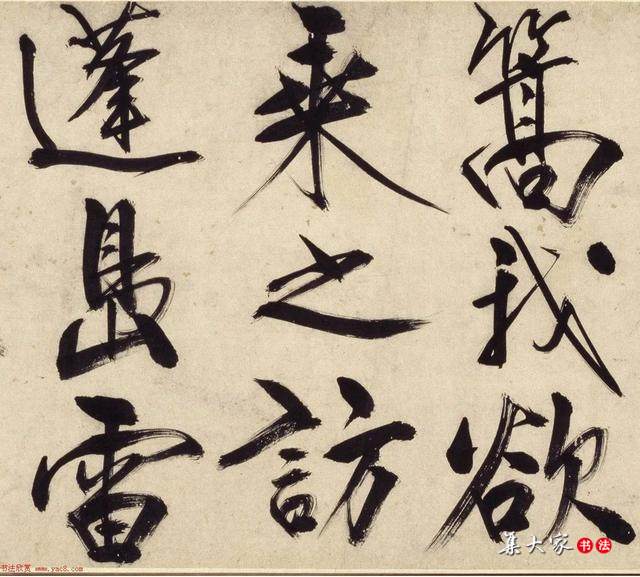 篙我欲
乘之訪
蓬島雷
集大家 书法
书法欣赏 www.yac8.com